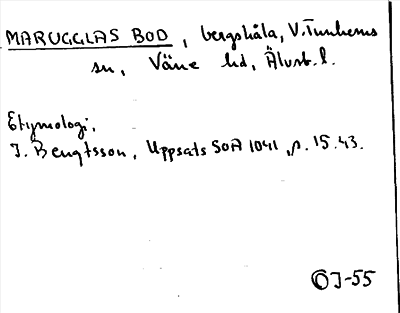 MARUGGLAS BOD, bergshåla, V. Tunhems
sn, Väne hd, Älvsb. l.
Etymologi.
J. Bengtsson, Uppsats SOA 1041, p. 15.43.
OJ-55